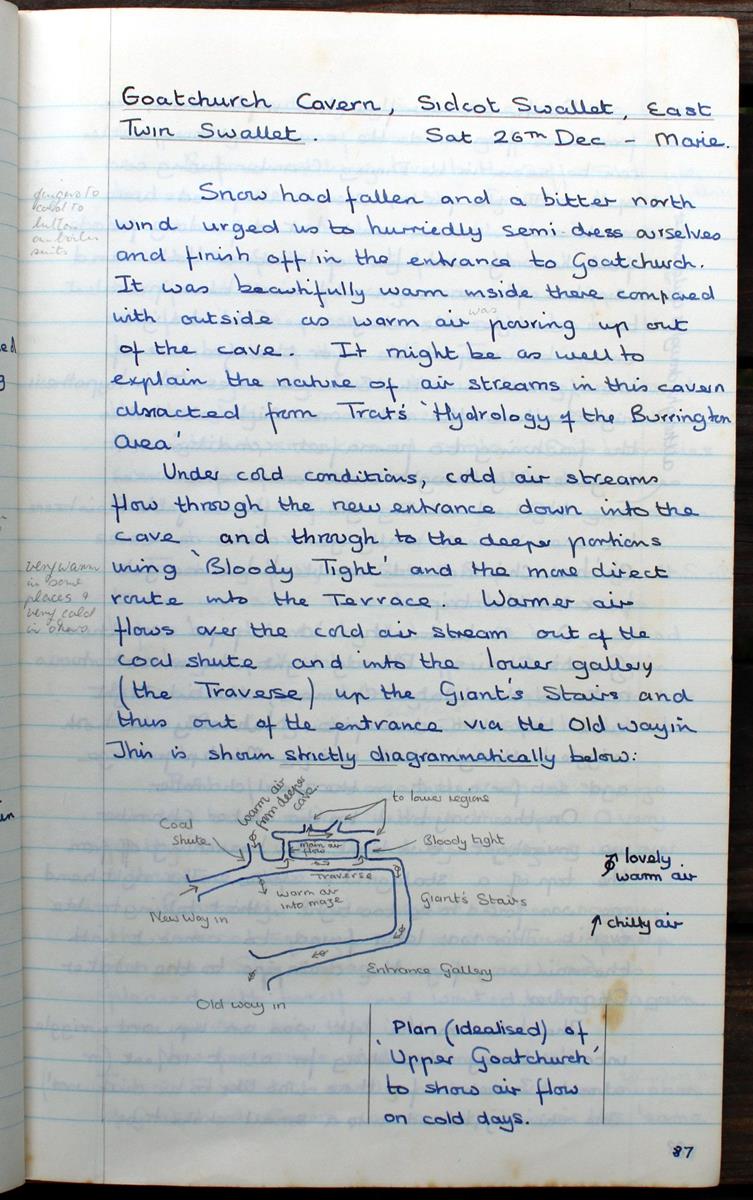 Goatchurch Cavern, Sidcot Swallet, East
Twin Swallet. Sat 26TH Dec - Marie.
Snow had fallen and a bitter north
wind urged us to hurriedly semi-dress ourselves
and finish off in the entrance to Goatchurch.
It was beautifully warm inside there compared
with outside as warm air was pouring up out
of the cave. It might be as well to
explain the nature of air streams in this cavern
absracted from Trat's 'Hydrology of the Burrington
Area'
Under cold conditions, cold air streams
flow through the new entrance down into the
cave and through to the deeper portions
using 'Bloody Tight' and the more direct
route into the Terrace. Warmer air
flows over the cold air stream out of the
coal shute and into the lower gallery
(the Traverse) up the Giant's Stairs and
thus out of the entrance via the Old way in
This is shown strictly diagrammatically below:
fingers to
cold to
button
on boiler
suits
very warm
in some
places &
very cold
in others
Warm air
from deeper
cave
to lower regions
Coal
Shute
main air
flow
Bloody tight
Traverse
Warm air
into maze
New Way in
Giant's Stairs
Entrance Gallery
Old way in
lovely
warm air
chilly air
Plan (idealised) of
'Upper Goatchurch'
to show air flow
on cold days.
87